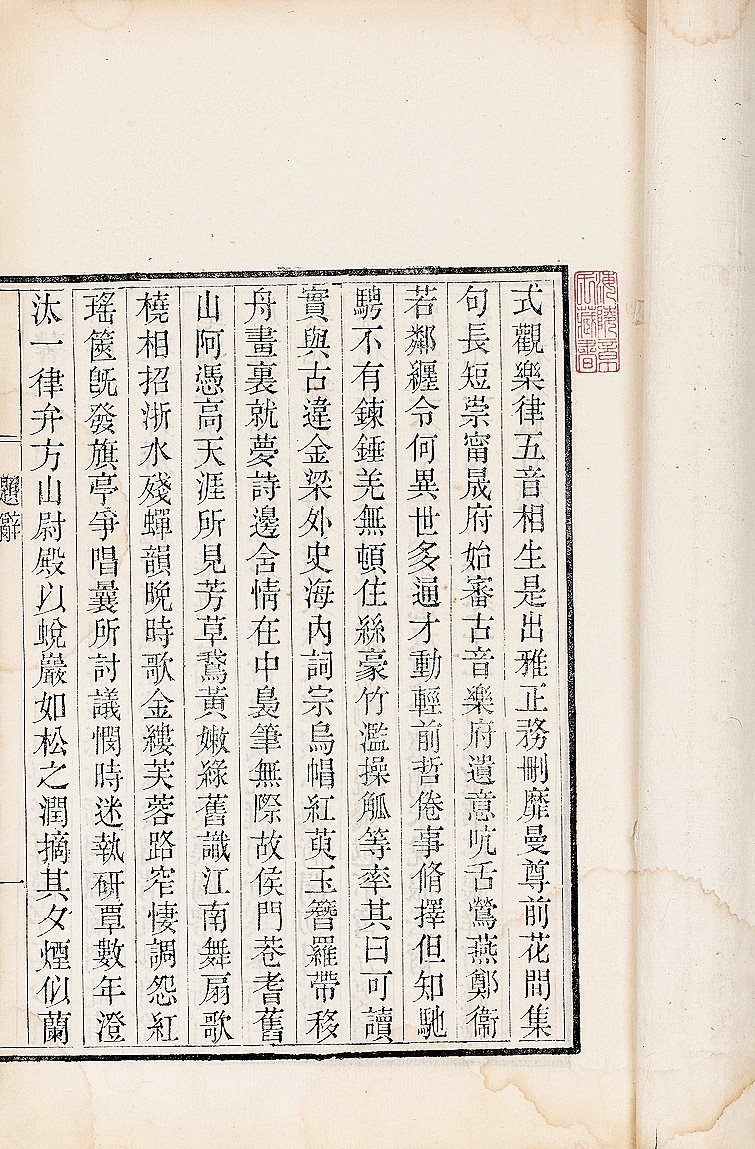 式觀樂律五音相生是出雅正務刪靡曼尊前花間集
句長短崇甯晟府始審古音樂府遺意吭舌鶯燕鄭衞
若鄰纏令何異世多逋才動輕前哲倦事脩擇但知馳
騁不有鍊錘羌無頓住絲豪竹濫操觚等率其曰可讀
實與古違金梁外史海內詞宗烏帽紅萸玉簪羅帶移
舟畫裏就夢詩邊舍情在中裊筆無際故侯門巷耆舊
山阿憑高天涯所見芳草鵞黃嫩綠舊識江南舞扇歌
橈相招浙水殘蟬韻晚時歌金縷芙蓉路窄悽調怨紅
瑤篋旣發旗亭爭唱曩所討議憪時迷執研覃數年澄
汰一律弁方山尉殿以蛻巖如松之潤摘其夕煙似蘭
題辭
一
海陵章氏藏書